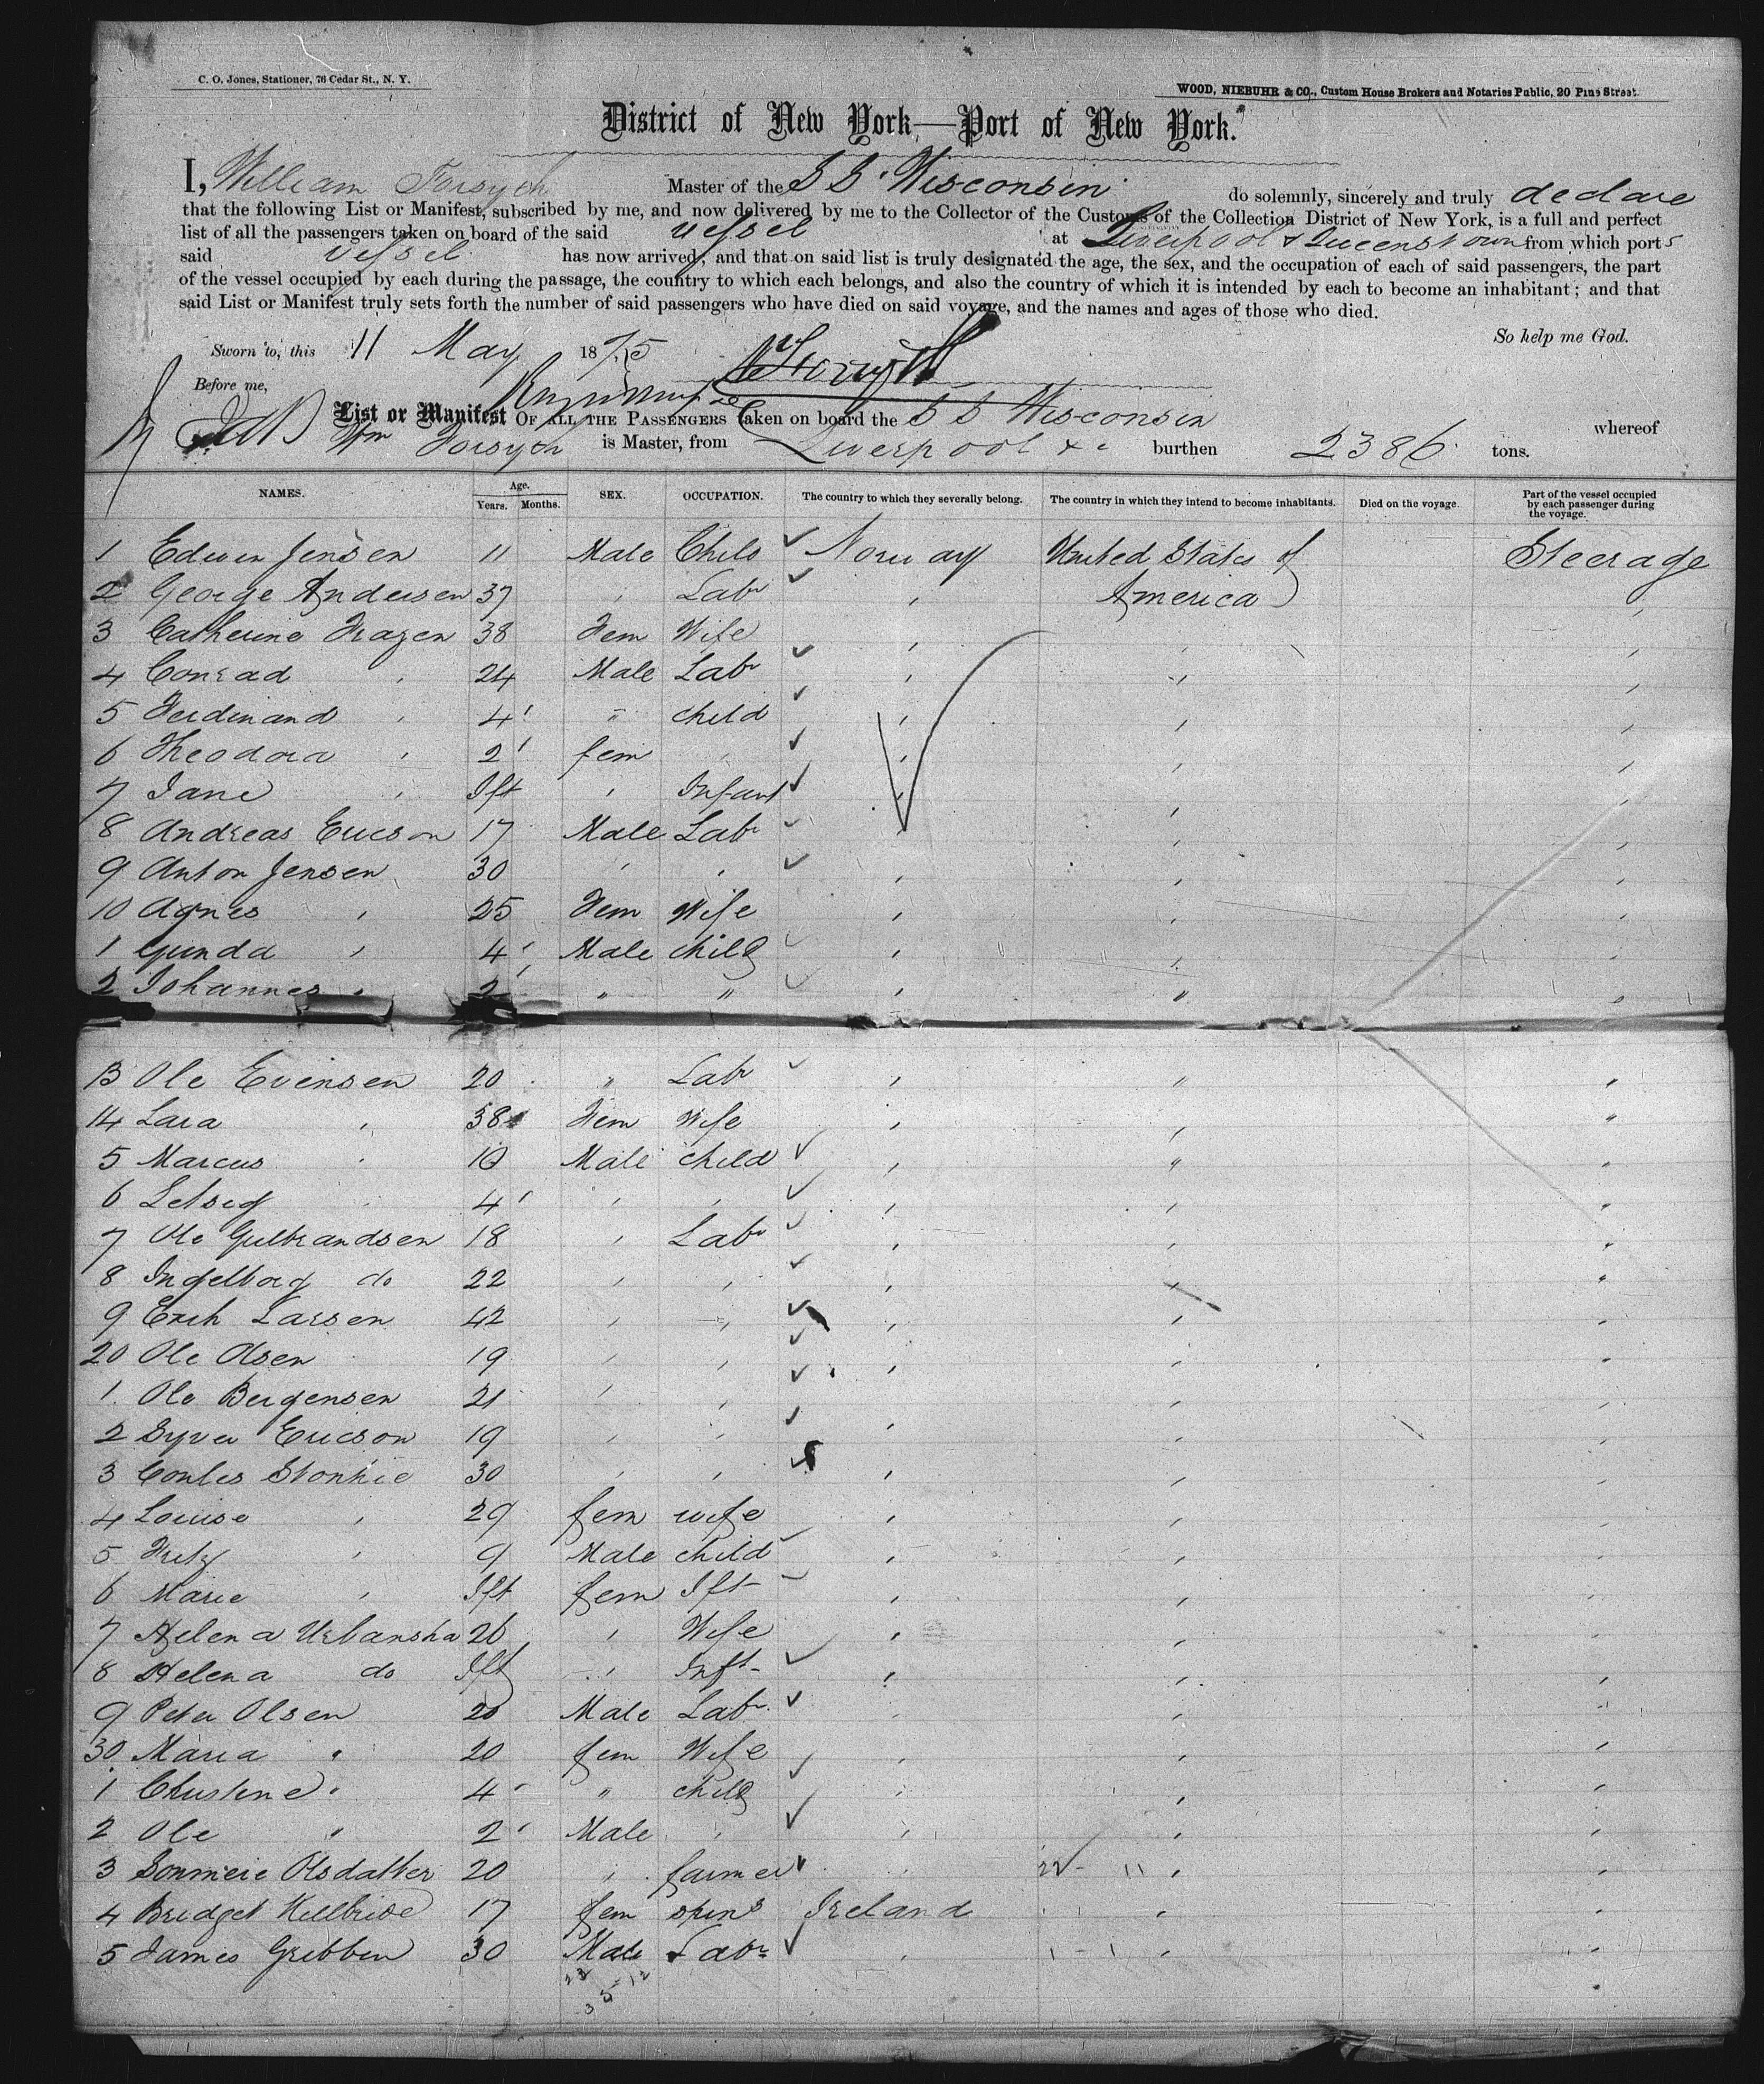 C. O. Jones, Stationer, 76 Cedar St., N. Y.
WOOD, NIEBUHR & CO., Custom House Brokers and Notaries Public, 20 Pine Street.
District of New York—Port of New York.
I, William Forsyth Master of the S S Wisconsin do solemnly, sincerely and truly declare
that the following List or Manifest, subscribed by me, and now delivered by me to the Collector of the Customs of the Collection District of New York, is a full and perfect
list of all the passengers taken on board of the said vessel at Liverpool & Queenstown from which ports
said vessel has now arrived; and that on said list is truly designated the age, the sex, and the occupation of each of said passengers, the part
of the vessel occupied by each during the passage, the country to which each belongs, and also the country of which it is intended by each to become an inhabitant; and that
said List or Manifest truly sets forth the number of said passengers who have died on said voyage, and the names and ages of those who died.
So help me God.
Sworn to, this 11 May 1875
Before me,
List or Manifest OF ALL THE PASSENGERS taken on board the S S Wisconsin whereof
Wm Forsyth is Master, from Liverpool &c burthen 2386 tons.
NAMES. Age. Years. Months. SEX. OCCUPATION. The country to which they severally belong. The country in which they intend to become inhabitants. Died on the voyage. Part of the vessel occupied by each passenger during the voyage.
1 Edwin Jensen 11 Male Child Norway United States of Steerage
2 George Andersen 37 " Labr " America "
3 Catherine Fragen 38 Fem Wife " " "
4 Conrad " 24 Male Labr " " "
5 Ferdinand " 4 " child " " "
6 Theodora " 2 fem " " " "
7 Jane " Ift " Infant " " "
8 Andreas Ericson 17 Male Labr " " "
9 Anton Jensen 30 " " " " "
10 Agnes " 25 Fem Wife " " "
1 Gunda " 4 Male child " " "
2 Johannes " 2 " " " " "
13 Ole Evensen 20 " Labr " " "
14 Lara " 38 Fem Wife " " "
5 Marcus " 10 Male child " " "
6 " 4 " " " " "
7 Ole Gulbrandsen 18 " Labr " " "
8 Ingelborg do 22 " " " " "
9 Erih Larsen 42 " " " " "
20 Ole Olsen 19 " " " " "
1 Ole Bergensen 21 " " " " "
2 Syver Ericson 19 " " " " "
3 30 " " " " "
4 Louise " 29 fem wife " " "
5 Fritz " 9 Male child " " "
6 Marie " Ift fem Ift " " "
7 Helena Urbanska 26 " Wife " " "
8 Helena do Ift " Inft " " "
9 Peter Olsen 20 Male Labr " " "
30 Maria " 20 fem Wife " " "
1 Christine " 4 " child " " "
2 Ole " 2 Male " " " "
3 Olsdatter 20 " farmer " " "
4 Bridget Killbride 17 fem spins Ireland " "
5 James Gribbin 30 Male Labr " " "